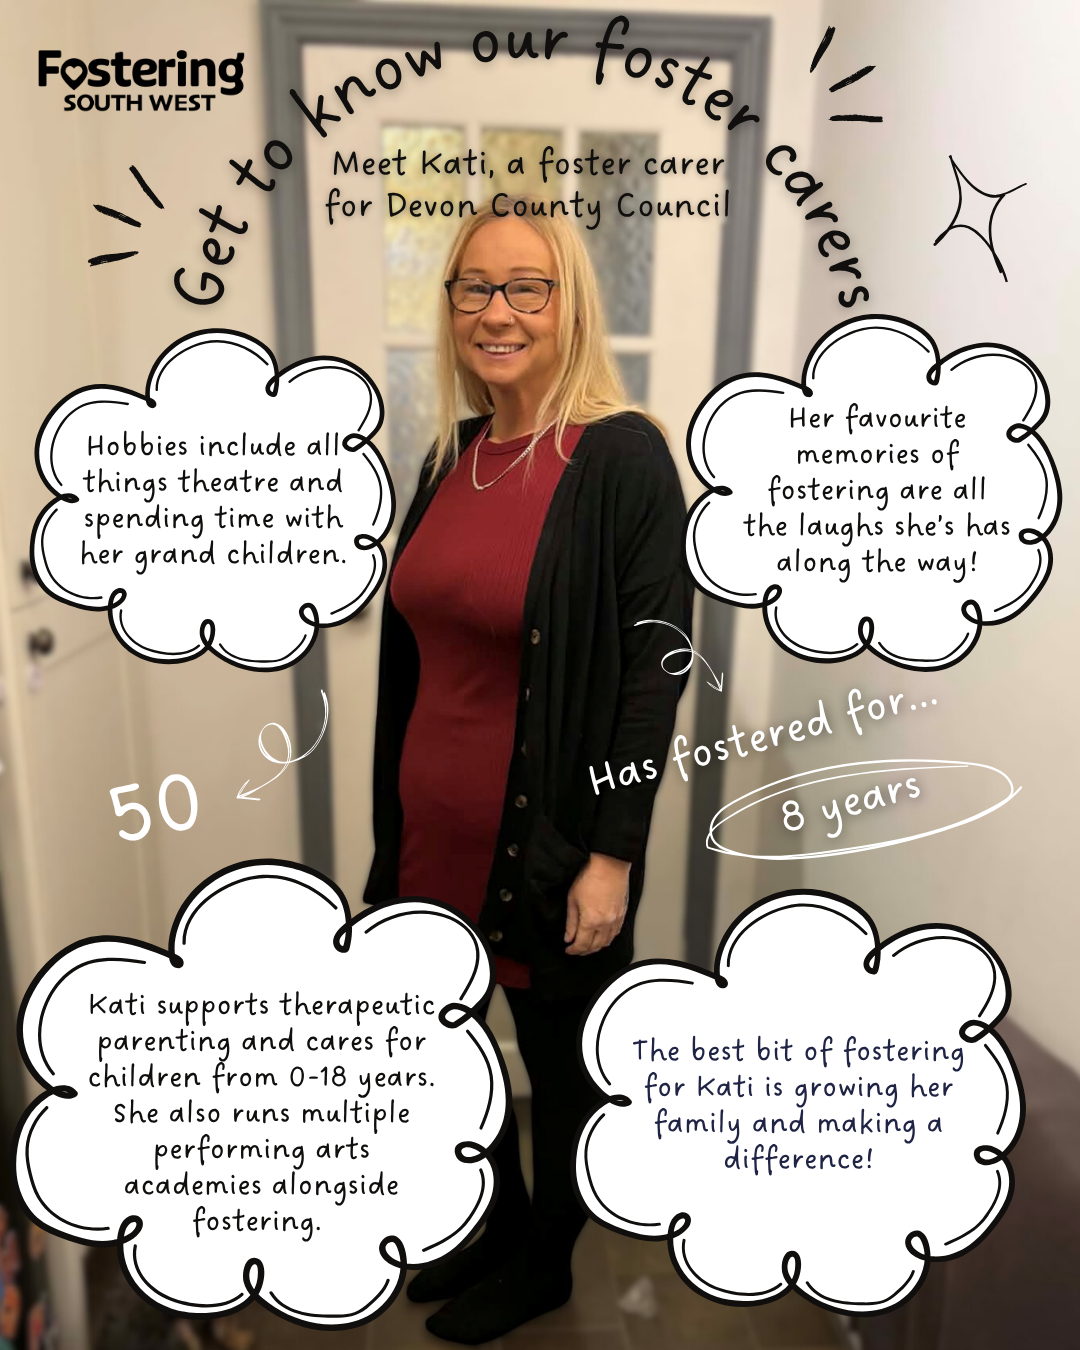 Fostering
SOUTH WEST
Get to know our foster carers
Meet Kati, a foster carer
for Devon County Council
Hobbies include all
things theatre and
spending time with
her grand children.
Her favourite
memories of
fostering are all
the laughs she's has
along the way!
Has fostered for...
8 years
50
Kati supports therapeutic
parenting and cares for
children from 0-18 years.
She also runs multiple
performing arts
academies alongside
fostering.
The best bit of fostering
for Kati is growing her
family and making a
difference!